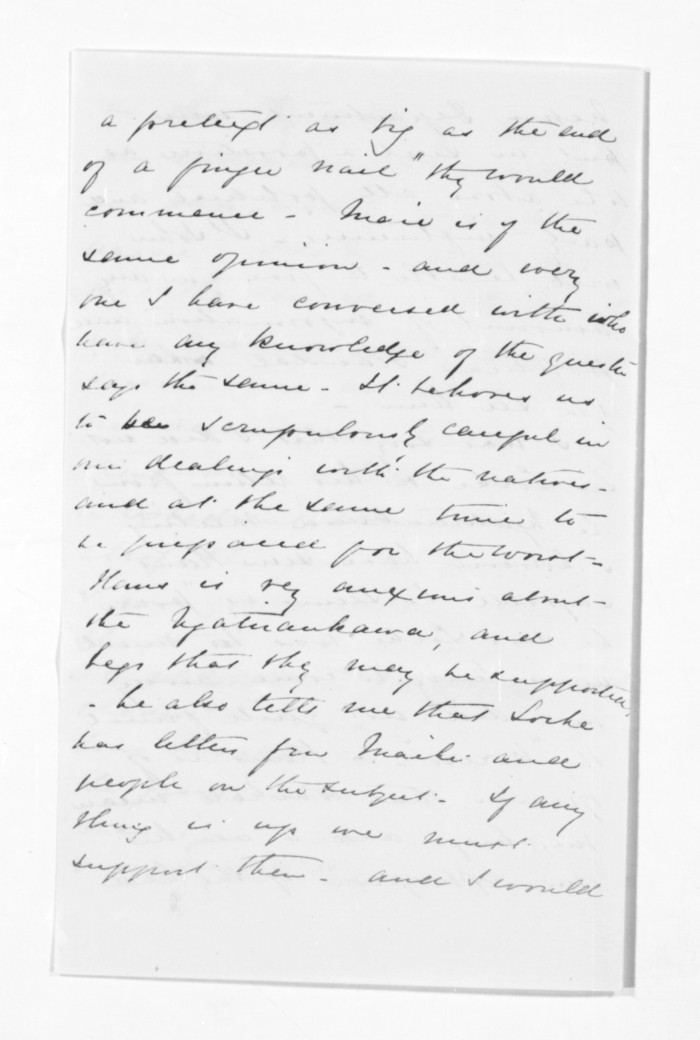 a pretext as big as the end
of a finger nail" they would
commence - Mair is of the
same opinion - and every
one I have conversed with who
have any knowledge of the questn
says the same - It behoves us
to be scrupulously careful in
our dealings with the natives -
and at the same time to
be prepared for the worst -
Hans is very anxious about -
the Ngatiraukawa, and
begs that they may be supported,
- he also tells me that Locke
has letters from and
people on the subject - If any
thing is up we must
support them - and I would